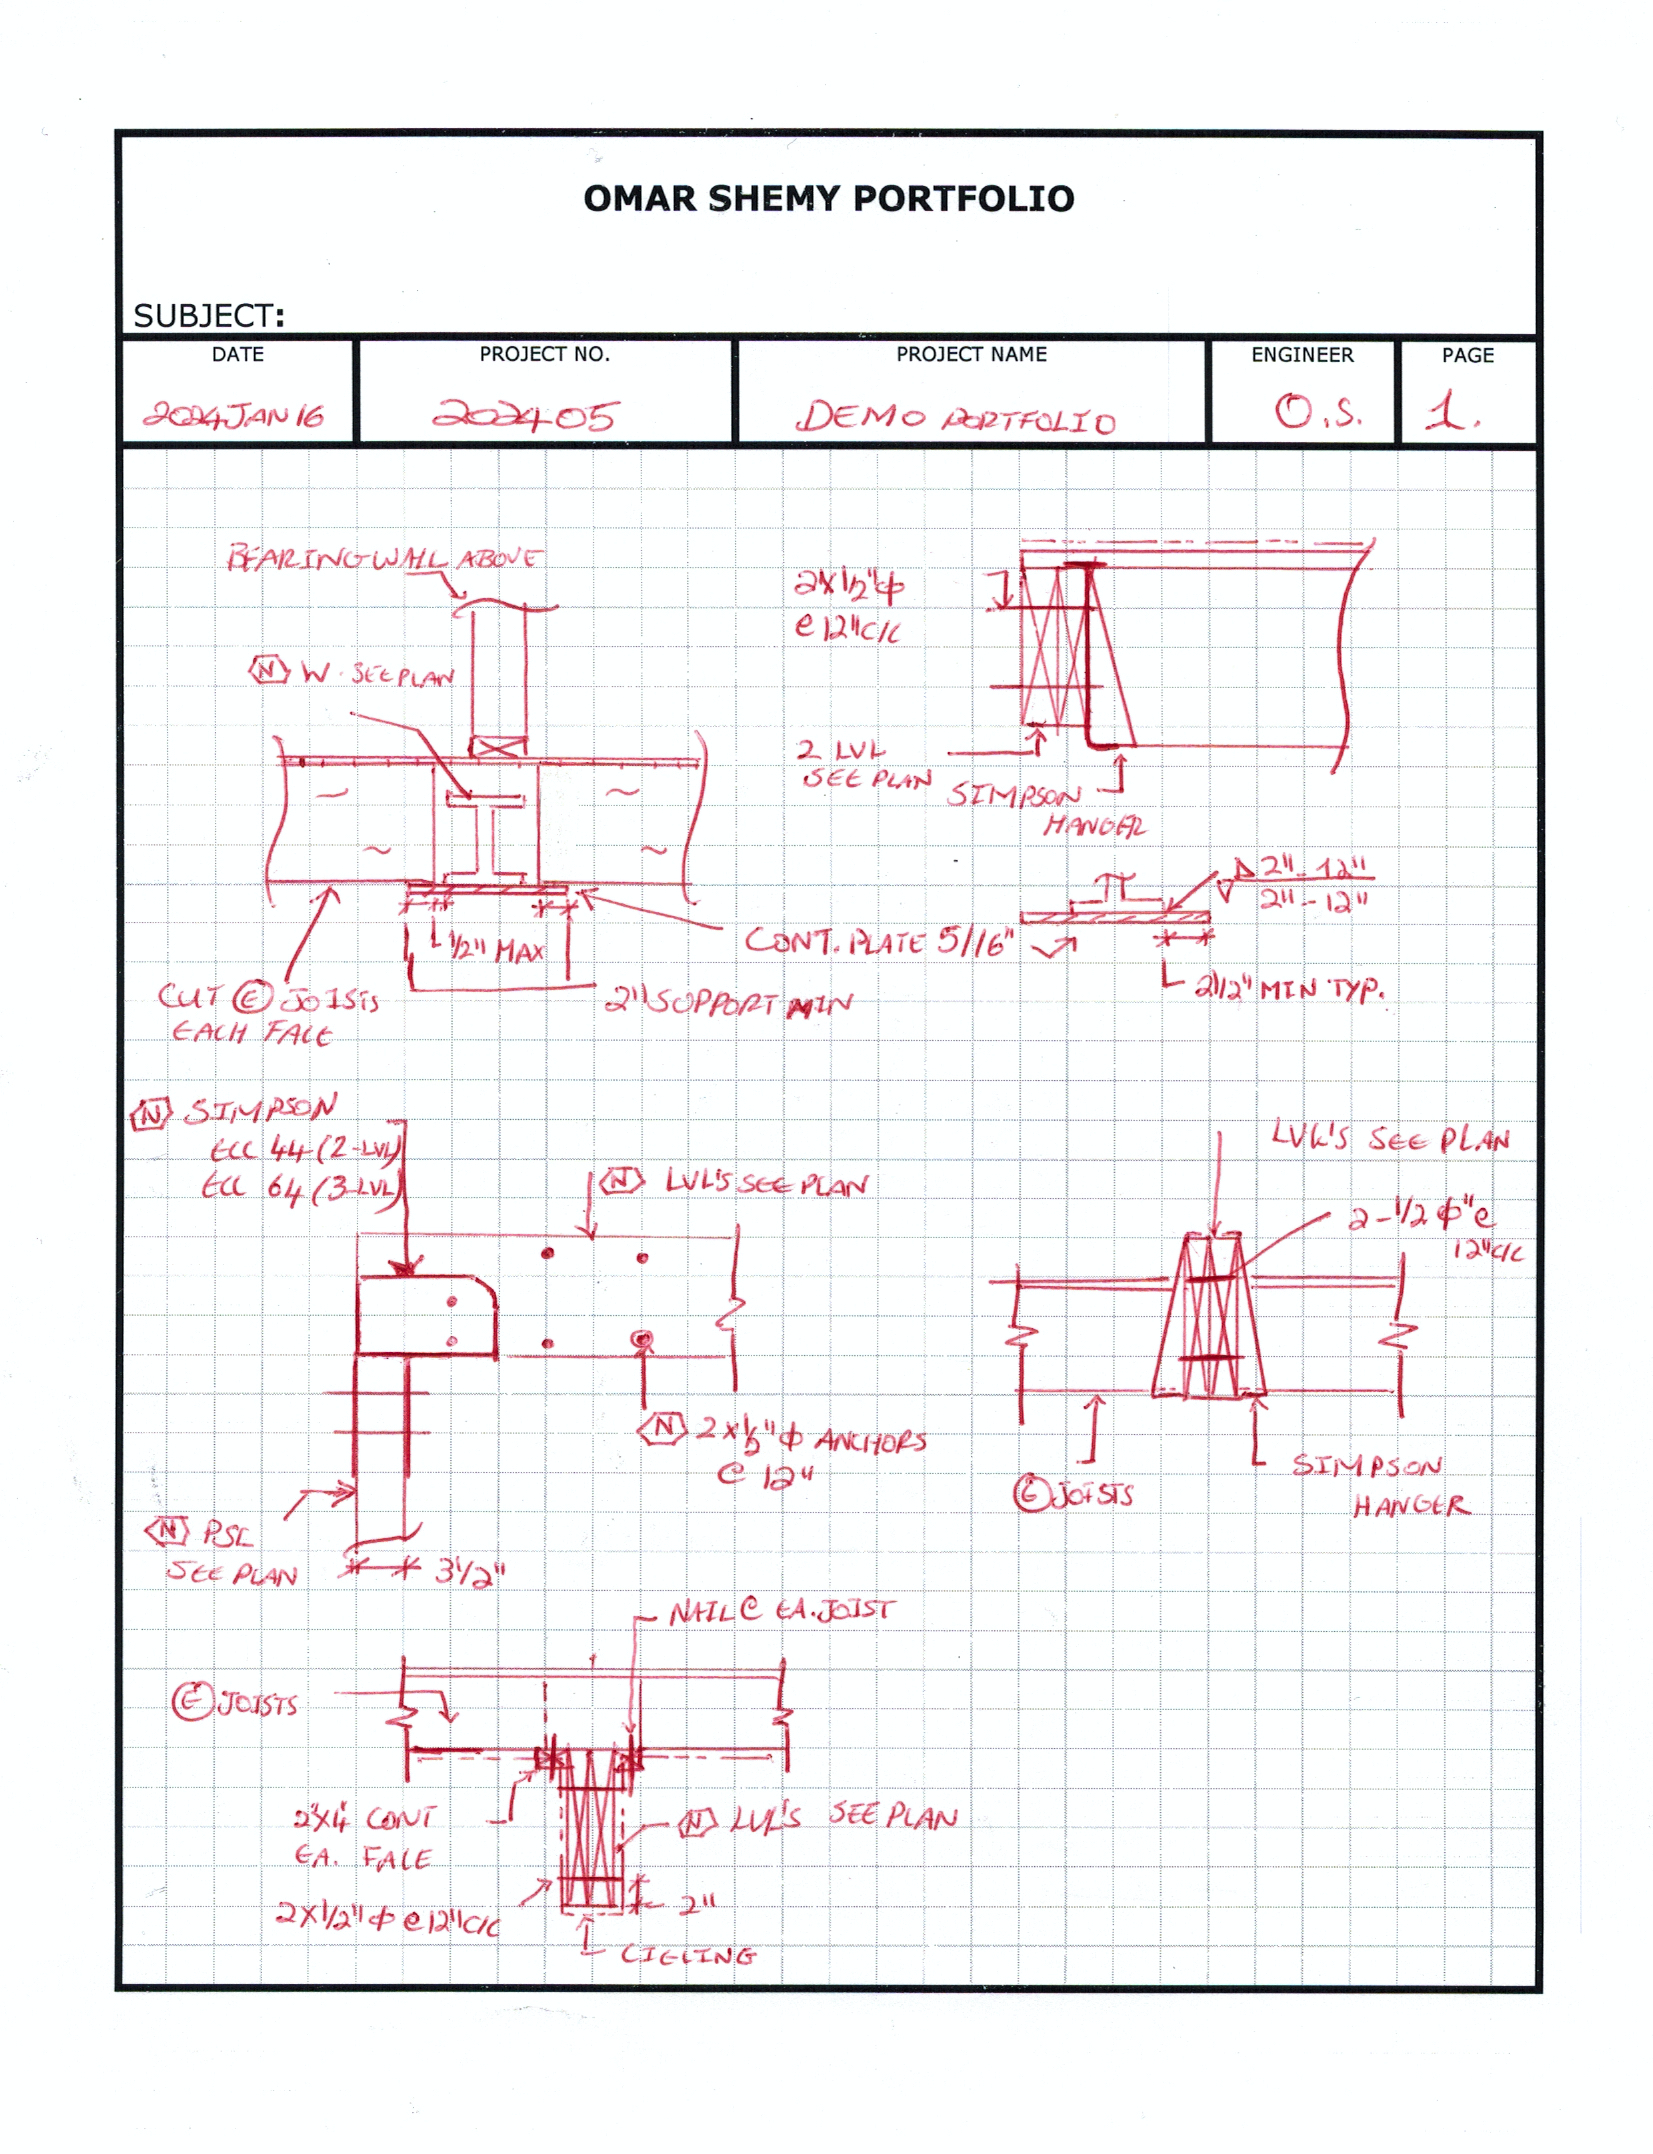 OMAR SHEMY PORTFOLIO
SUBJECT:
DATE
PROJECT NO.
PROJECT NAME
ENGINEER
PAGE
2024JAN16
202405
DEMO PORTFOLIO
O.S.
1.
BEARING WALL ABOVE
N W. SEE PLAN
1/2" MAX
CONT. PLATE 5/16"
2" SUPPORT MIN
CUT E JOISTS
EACH FACE
2x1/2"ϕ
@ 12"C/C
2 LVL
SEE PLAN
SIMPSON
HANGER
2"-12"
2"-12"
2 1/2" MIN TYP.
N SIMPSON
ECC 44 (2-LVL)
ECC 64 (3-LVL)
N LVL'S SEE PLAN
N 2x1/2"ϕ ANCHORS
@ 12"
N PSL
SEE PLAN
3 1/2"
LVL'S SEE PLAN
2-1/2ϕ"@
12"C/C
E JOISTS
SIMPSON
HANGER
NAIL @ EA. JOIST
E JOISTS
2"x4" CONT
EA. FACE
N LVL'S SEE PLAN
2x1/2"ϕ @12"C/C
2"
CIELING